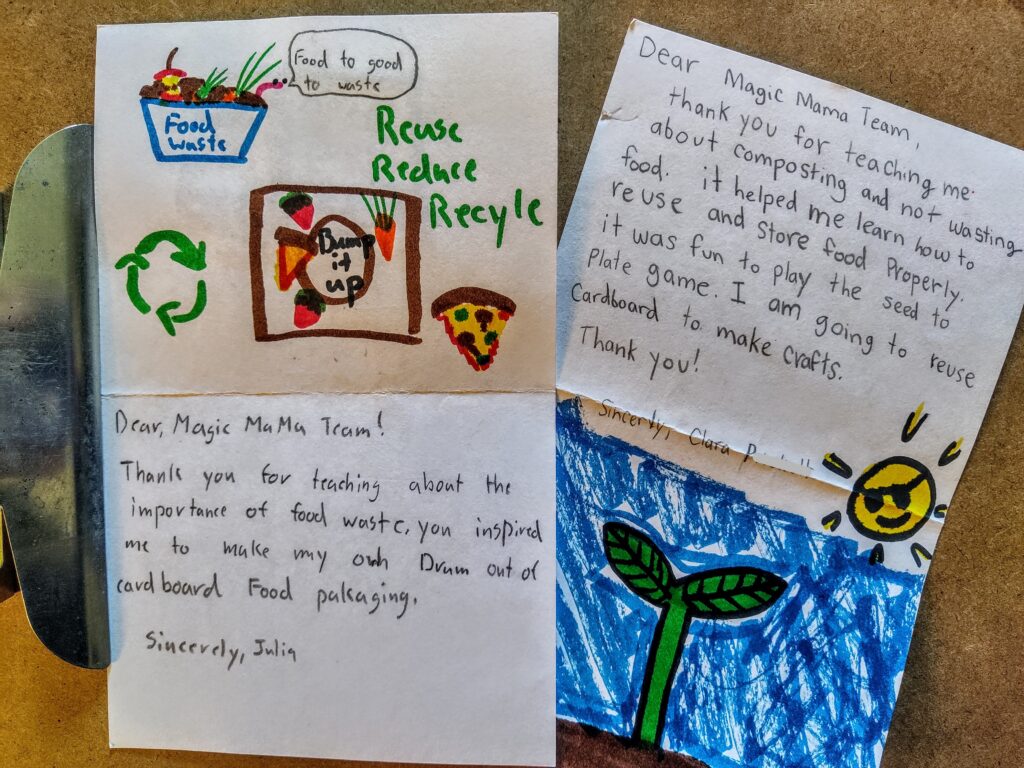 Food to good
to waste
Food
waste
Reuse
Reduce
Recyle
Bump
it
up
Dear, Magic MaMa Team!
Thank you for teaching about the
importance of food waste, you inspired
me to make my own Drum out of
cardboard Food pakaging.
Sincerely, Julia
Dear Magic Mama Team,
thank you for teaching me
about composting and not wasting
food. it helped me learn how to
reuse and store food Properly.
it was fun to play the seed to
Plate game. I am going to reuse
Cardboard to make crafts.
Thank you!
Sincerly, Clara